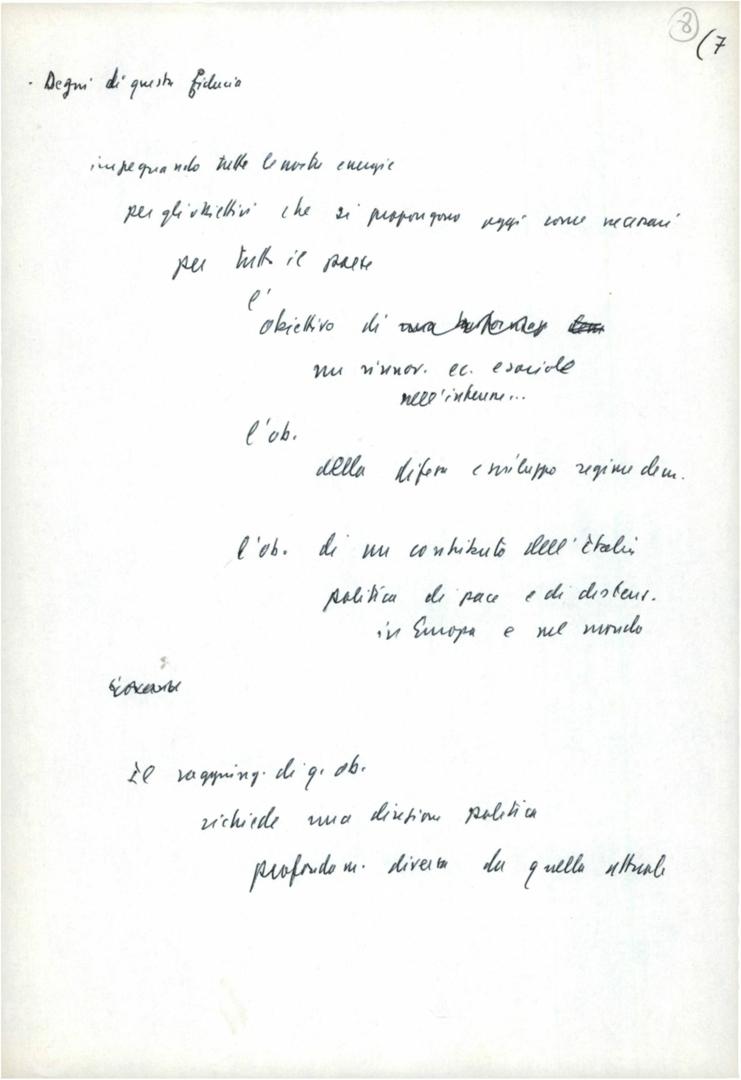 8 (7
. Degni di questa fiducia
impegnando tutte le nostre energie
per gli obiettivi che si propongono oggi come necessari
per tutto il paese
l'
obiettivo di una
un rinnov. ec. e sociale
nell'interne...
l'ob.
della difesa e sviluppo regime dem.
l'ob. di un contributo dell'Italia
politica di pace e di disten.
in Europa e nel mondo
Il raggiung. di q. ob.
richiede una direzione politica
profondam. diversa da quella attuale